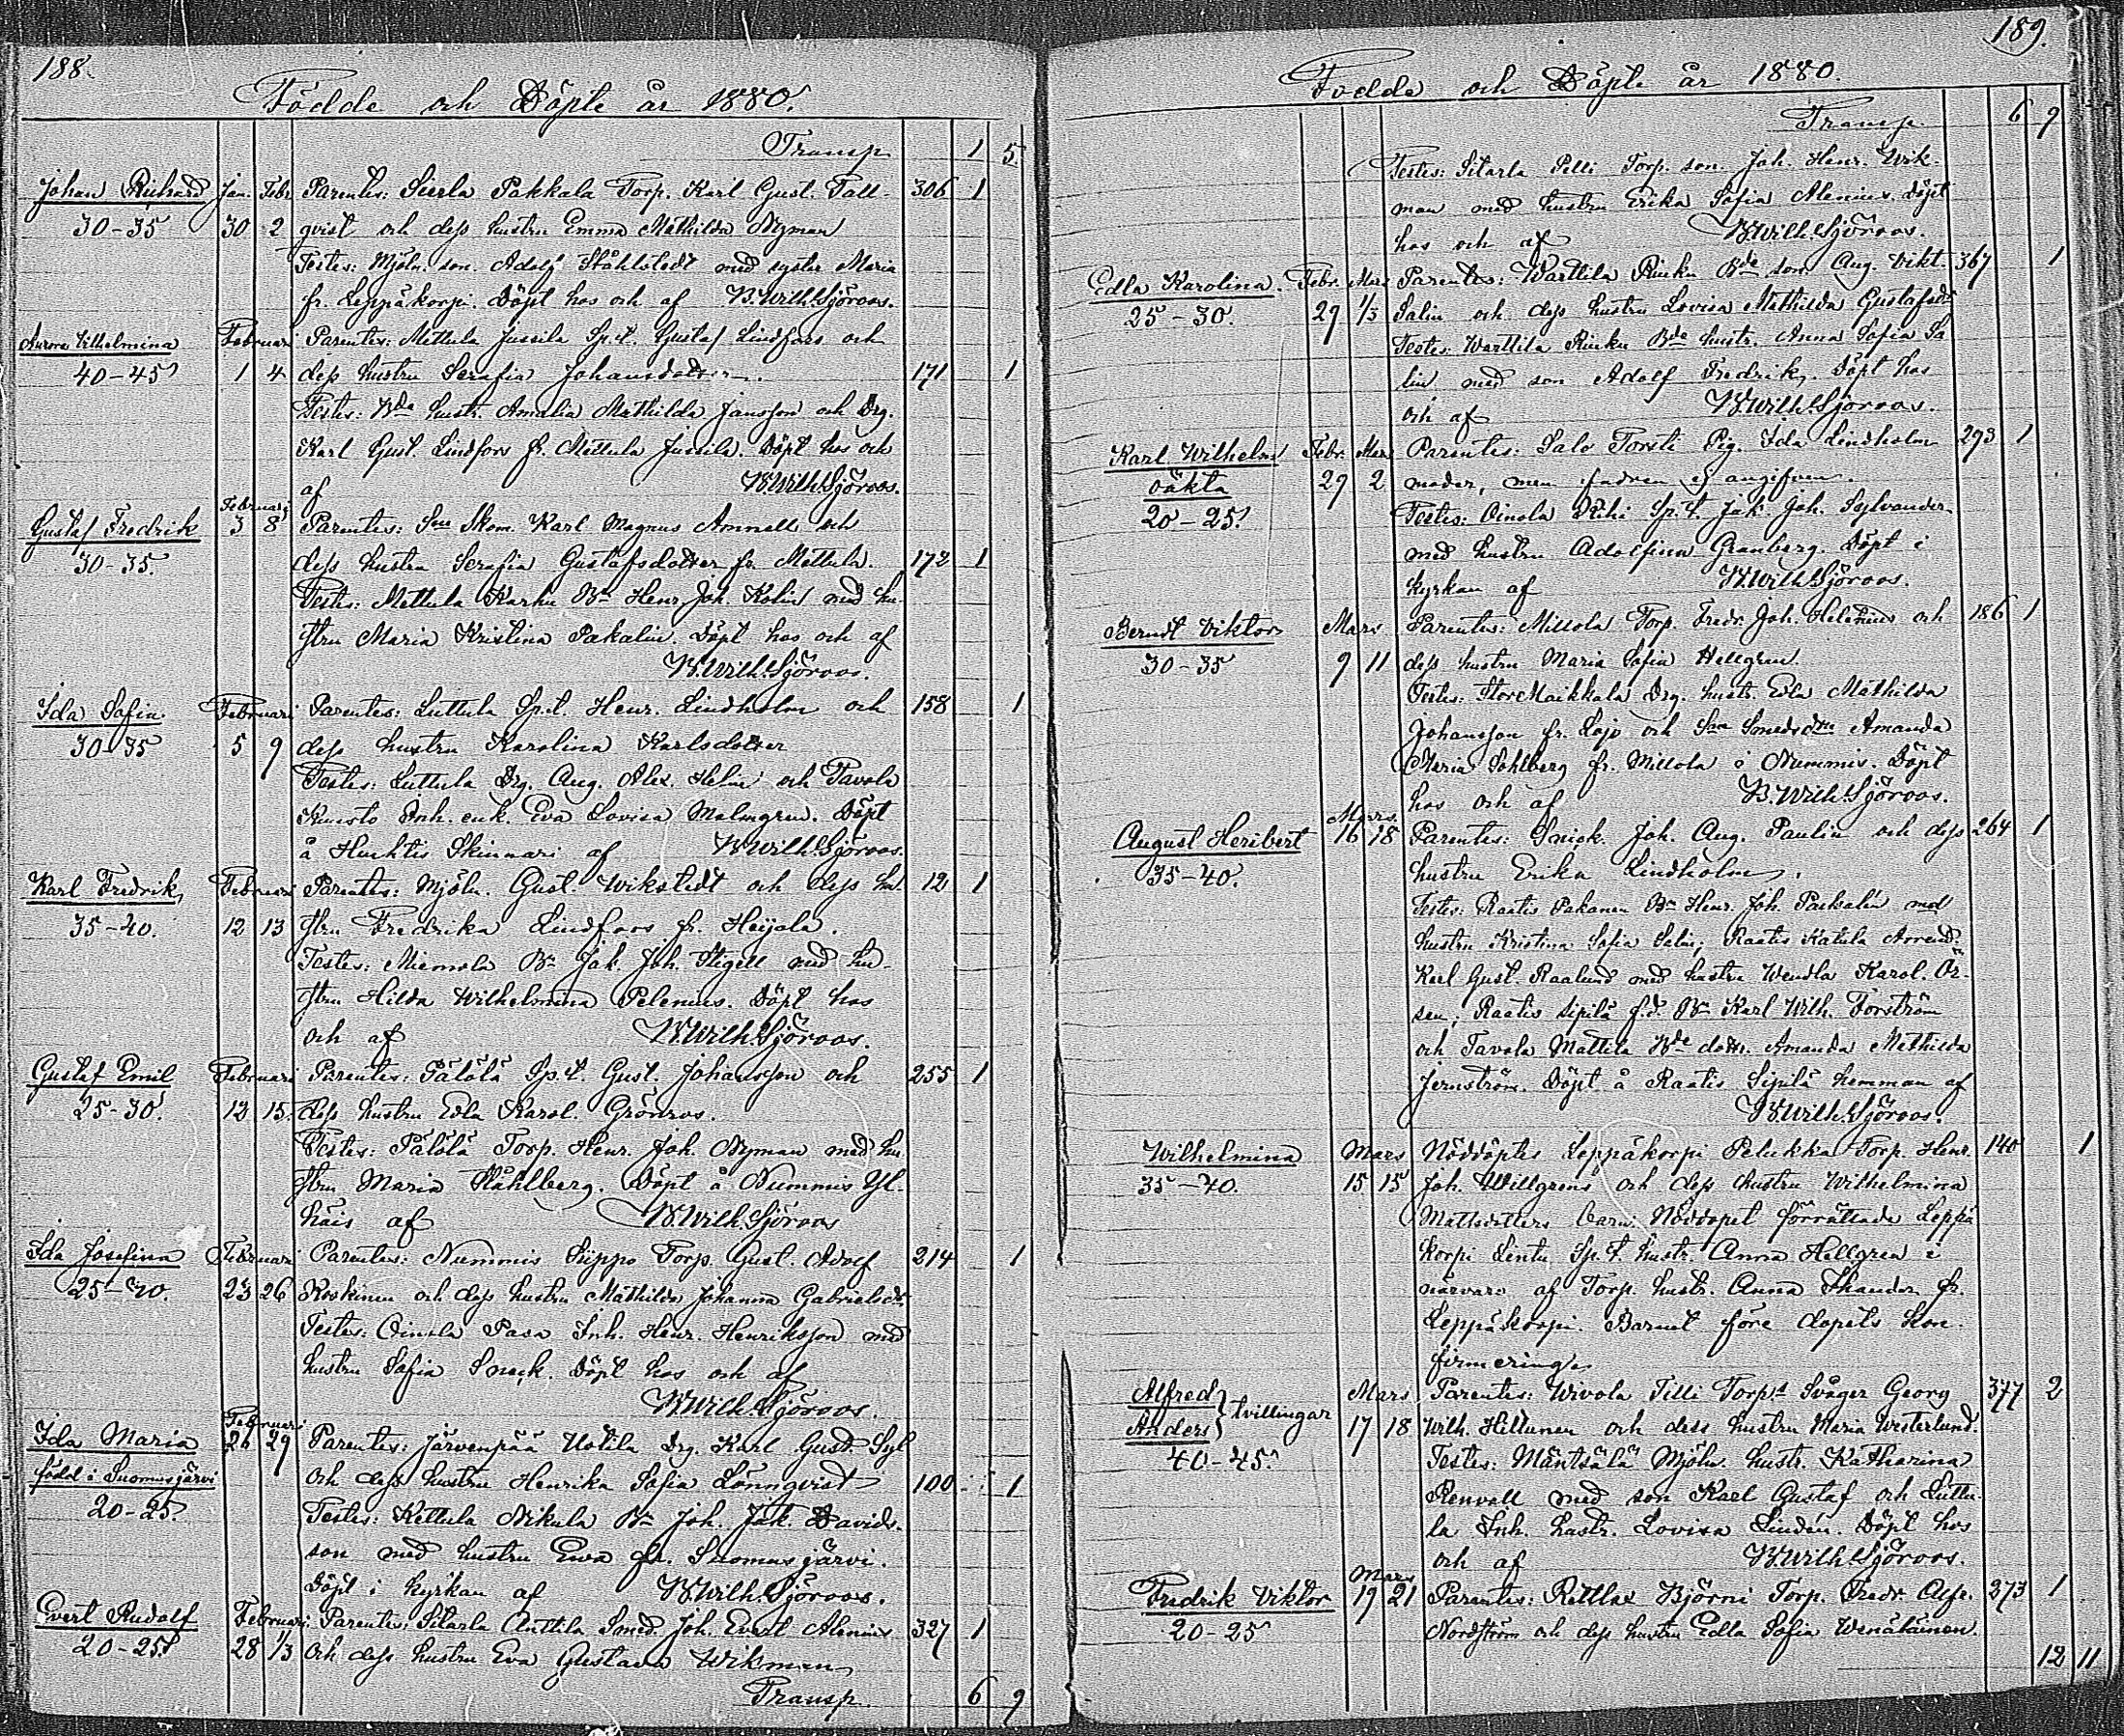 188.
Födde och Döpte år 1880.
Transp. 1 5.
Johan Richard Jan. Febr. Parentes: Sierla Pakkala Torp. Karl Gust. Tall- 306 1
30-35 30 2 qvist och dess hustru Emma Mathilda Nyman
Testes: Mjöln. son. Adolf Ståhlstedt med syster Maria
fr. Leppäkorpi. Döpt hos och af B.Wilh.Sjöroos.
Aurora Vilhelmina Februari Parentes: Mettula Jussila Sp.t. Gustaf Lindfors och
40-45 1 4 dess hustru Serafia Johansdotter. 171 1
Testes: Bde hustr. Amalia Mathilda Jansson och Drg.
Karl Gust. Lindfors fr. Mettula Jussila. Döpt hos och
af B.Wilh.Sjöroos.
Gustaf Fredrik Februari 3 8 Parentes: Sne Skom. Karl Magnus Amnell och
30-35. dess hustru Serafia Gustafsdotter fr. Mettula. 172 1
Testes: Mettula Karhu Bn Henr. Joh. Kolin med hu-
stru Maria Kristina Pakalin. Döpt hos och af
B.Wilh.Sjöroos.
Ida Sofia Februari Parentes: Luttula Sp.t. Henr. Lindholm och 158 1
30-35 5 9 dess hustru Karolina Karlsdotter
Testes: Luttula Drg. Aug. Alex. Helin och Tavola
Knuuto Inh. enk. Eva Lovisa Malmgren. Döpt
å Huhtis Skinnari af B.Wilh.Sjöroos.
Karl Fredrik Februari Parentes: Mjöln. Gust. Wikstedt och dess hu- 12 1
35-40. 12 13 stru Fredrika Lindfors fr. Heijala.
Testes: Miemola Bn Jak. Joh. Stigell med hu-
stru Hilda Wilhelmina Pelenius. Döpt hos
och af B.Wilh.Sjöroos.
Gustaf Emil Februari Parentes: Pälölä Sp.t. Gust. Johansson och 255 1
25-30. 12 15. dess hustru Edla Karol. Grönroos.
Testes: Pälölä Torp. Henr. Joh. Nyman med hu-
stru Maria Ståhlberg. Döpt å Nummis Yl-
häis af B.Wilh.Sjöroos
Ida Josefina Februari Parentes: Nummis Siippo Torp. Gust. Adolf 214 1
25-30. 23 26 Koskinen och dess hustru Mathilda Johanna Gabrielsdr.
Testes: Oinola Pasa Inh. Henr. Henriksson med
hustru Sofia Snäck. Döpt hos och af
B.Wilh.Sjöroos.
Ida Maria Februari 26 29 Parentes: Järvenpää Uotila Drg. Karl Gust. Syl
född i Suomusjärvi och dess hustru Henrika Sofia Lönnqvist 100 1
20-25. Testes: Kettula Nikula Bn Joh. Jak. Davids-
son med hustru Ewa fr. Suomusjärvi.
Döpt i kyrkan af B.Wilh.Sjöroos.
Evert Rudolf Februari Parentes: Sitarla Anttila Smed. Joh. Evert Alenius 327 1
20-25. 28 1/3 och dess hustru Eva Gustava Wikman
Transp. 6 9
189.
Födde och Döpte år 1880.
Transp. 6 9
Testes: Sitarla Pelli Torp. son. Joh. Henr. Wik-
man med hustru Erika Sofia Alenius. Döpt
hos och af B.Wilh.Sjöroos.
Edla Karolina. Febr. Mars Parentes: Warttila Rinku Bde son Aug. Vikt. 367 1
25-30. 29 1/3 Salin och dess hustru Lovisa Mathilda Gustafsdr
Testes: Warttila Rinku Bde hustr. Anna Sofia Sa
lin med son Adolf Fredrik. Döpt hos
och af B.Wilh.Sjöroos.
Karl Wilhelm Febr. Mars Parentes: Salo Torsti Pig. Ida Lindholm 293 1
oäkta 29 2 moder, men fadren ej angifven.
20-25. Testes: Oinola Riihi Sp.t. Jak. Joh. Sylvander
med hustru Adolfina Granberg. Döpt i
kyrkan af B.Wilh.Sjöroos.
Berndt Viktor Mars Parentes: Millola Torp. Fredr. Joh. Helenius och 186 1
30-35 9 11 dess hustru Maria Sofia Hellgren.
Testes: StorMaikkala Drg. hustr. Eda Mathilda
Johansson fr. Lojo och Sne Smedsdtr Amanda
Maria Sahlberg fr. Millola i Nummis. Döpt
hos och af B.Wilh.Sjöroos.
August Heribert Mars. 16 18 Parentes: Snick. Joh. Aug. Paulin och dess 264 1
35-40. hustru Erika Lindholm.
Testes: Raatis Pakanen Bn Henr. Joh. Paskalin med
hustru Kristina Sofia Salin; Raatis Katula Arrend.
Karl Gust. Raalund med hustru Wendla Karol. Ör-
sen; Raatis Sipilä f.d. Bn Karl Wilh. Forström
och Tavola Mattila Bde dottr. Amanda Mathilda
Jernström. Döpt å Raatis Sipilä hemman af
B.Wilh.Sjöroos.
Wilhelmina Mars Nöddöptes Leppäkorpi Pelukka Torp. Henr. 140 1
35-40. 15 15 Joh. Willgrens och dess hustru Wilhelmina
Mattsdotters barn. Nöddopet förrättade Leppä
korpi Lentu Sp.t. hustr. Anna Hellgren i
närvaro af Torp. hustr. Anna Skander fr.
Leppäkorpi. Barnet före dopets kon-
firmering.
Alfred Anders } tvillingar Mars Parentes: Wivola Tilli Torps Svåger Georg 377 2
17 18 Wilh. Hiltunen och dess hustru Maria Westerlund.
40-45. Testes: Mäntsälä Mjöln. hustr. Katharina
Renvall med son Karl Gustaf och Luttu-
la Inh. hustr. Lovisa Lindén. Döpt hos
och af B.Wilh.Sjöroos.
Fredrik Viktor Mars 19 21 Parentes: Rettlax Björni Torp. Fredr. Alfr. 373 1
20-25 Nordström och dess hustru Edla Sofia Wenäläinen.
12 11